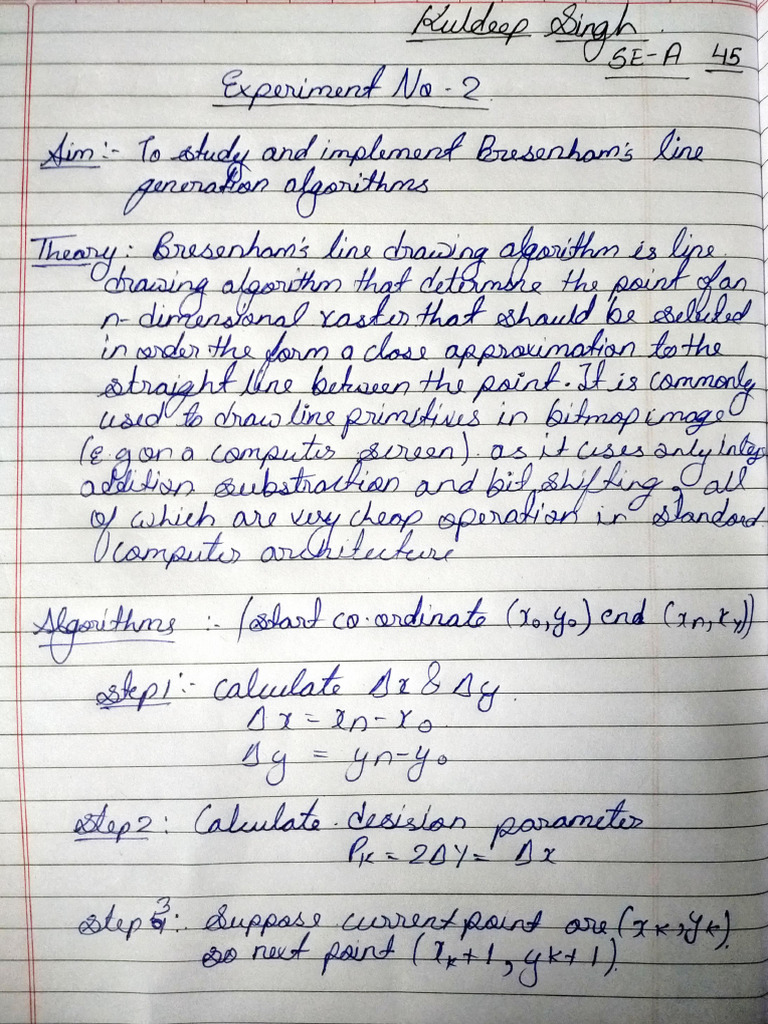 Kuldeep Singh.
SE-A 45
Experiment No - 2.
Aim :- To study and implement Bresenham's line
generation algorithms
Theory : Bresenham's line drawing algorithm is line
drawing algorithm that determine the point of an
n-dimensional raster that should be selected
in order the form a close approximation to the
straight line between the point. It is commonly
used to draw line primitives in bitmap image
(e.g on a computer screen). as it uses only integ
addition substraction and bit shifting, all
of which are very cheap operation in standard
computer architecture
Algorithms :- (start co-ordinate (x₀,y₀) end (xn, ))
step1 :- calculate Δx & Δy.
Δx = xn-x₀
Δy = yn-y₀
step2 : Calculate decision parameter
Pk = 2ΔY= Δx
step 3 : Suppose current point are (xk,yk).
so next point (xk+1, yk+1).